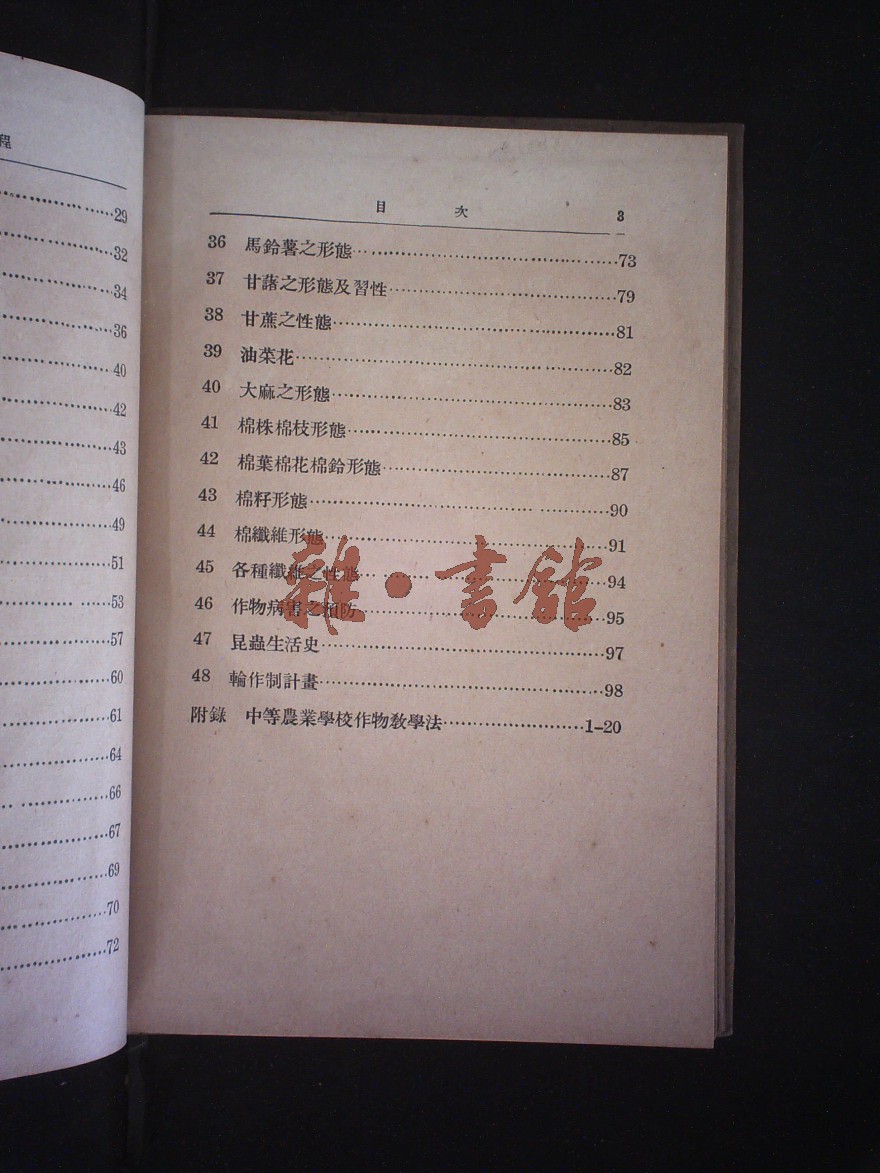 程
29
32
34
36
40
42
43
46
49
51
53
57
60
61
64
66
67
69
70
72
目 次 3
36 馬鈴薯之形態 73
37 甘藷之形態及習性 79
38 甘蔗之性態 81
39 油菜花 82
40 大麻之形態 83
41 棉株棉枝形態 85
42 棉葉棉花棉鈴形態 87
43 棉籽形態 90
44 棉纖維形態 91
45 各種纖維之性態 94
46 作物病害之預防 95
47 昆蟲生活史 97
48 輪作制計畫 98
附錄 中等農業學校作物敎學法 1-20
雜·書館